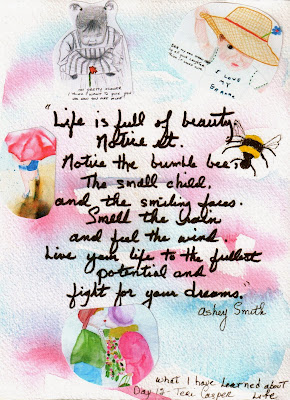 "Life is full of beauty.
Notice it.
Notice the bumble bee,
The small child,
and the smiling faces.
Smell the rain
and feel the wind.
Live your life to the fullest
potential and
fight for your dreams."
Ashey Smith
I LOVE
MY
What I have Learned about
Life
Day 12 - Teri Casper